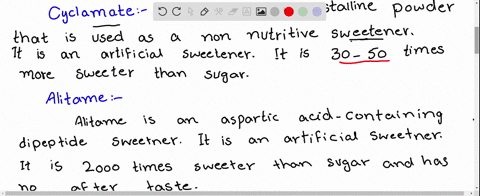 Cyclamate:- stalline powder
that is used as a non nutritive sweetener.
It is an artificial sweetener. It is 30-50 times
more sweeter than sugar.
Alitame:-
Alitame is an aspartic acid-containing
dipeptide sweetner. It is an artificial sweetner.
It is 2000 times sweeter than sugar and has
no after taste.